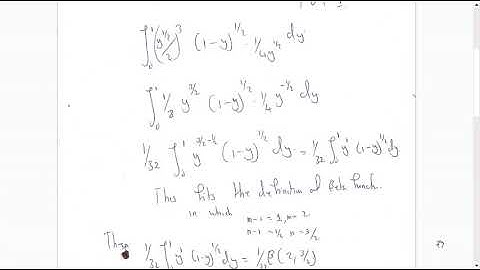 ∫₀¹ (y^{1/2}/2)³ (1-y)^{1/2} · 1/4 y^{1/2} dy
∫₀¹ 1/8 y^{3/2} (1-y)^{1/2} · 1/4 y^{-1/2} dy
1/32 ∫₀¹ y^{3/2-1/2} (1-y)^{1/2} dy = 1/32 ∫₀¹ y¹ (1-y)^{1/2} dy
This fits the definition of Beta function.
in which m-1=1, m=2
n-1=1/2 n=3/2
Then 1/32 ∫₀¹ y¹ (1-y)^{1/2} dy = 1/32 β(2, 3/2)